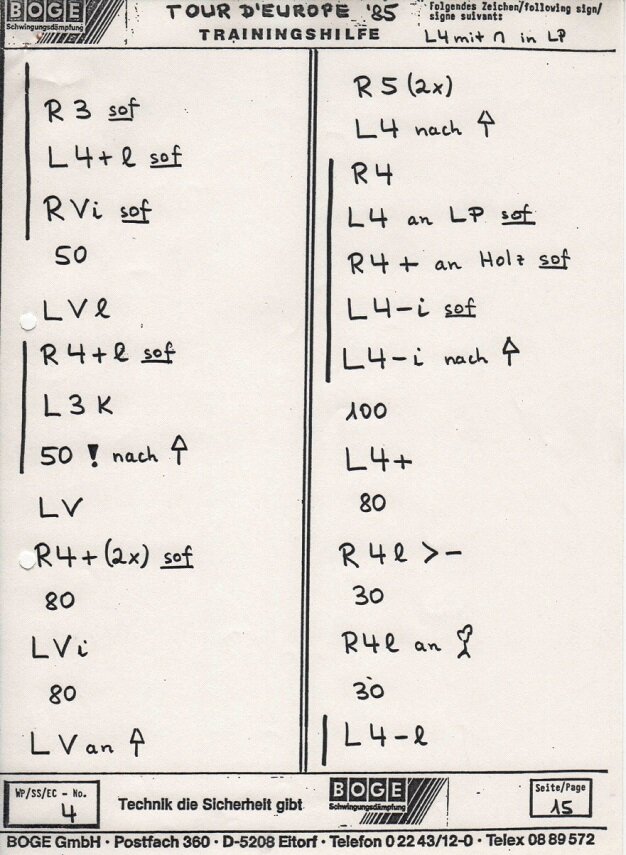 BOGE
Schwingungsdämpfung
TOUR D'EUROPE '85
TRAININGSHILFE
Folgendes Zeichen/following sign/
signe suivant:
L4 mit ∩ in LP
R 3 sof
L 4 + l sof
R V i sof
50
L V l
R 4 + l sof
L 3 K
50 ! nach ↑
L V
R 4 + (2x) sof
80
L V i
80
L V an ↑
R 5 (2x)
L 4 nach ↑
R 4
L 4 an LP sof
R 4 + an Holz sof
L 4 – i sof
L 4 – i nach ↑
100
L 4 +
80
R 4 l > –
30
R 4 l an
30
L 4 – l
WP/SS/EC - No.
4
Technik die Sicherheit gibt
BOGE
Schwingungsdämpfung
Seite/Page
15
BOGE GmbH · Postfach 360 · D-5208 Eitorf · Telefon 0 22 43/12-0 · Telex 08 89 572